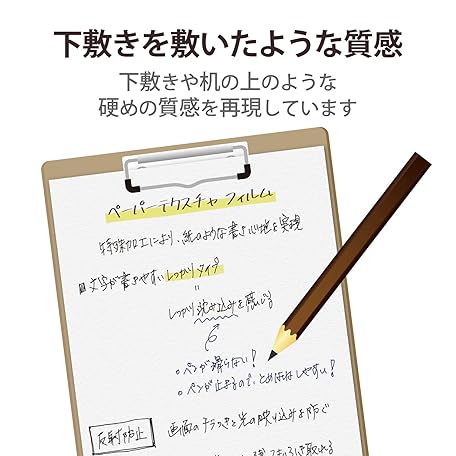 下敷きを敷いたような質感
下敷きや机の上のような
硬めの質感を再現しています
ペーパーテクスチャフィルム
特殊加工により、紙のような書き心地を実現
文字が書きやすいしっかりタイプ
=
しっかり沈み込みを感じる
。ペンが滑らない!
。ペンが止まるので、とめはねはらいしやすい!
反射防止
画面のチラつきと光の映り込みを防ぐ